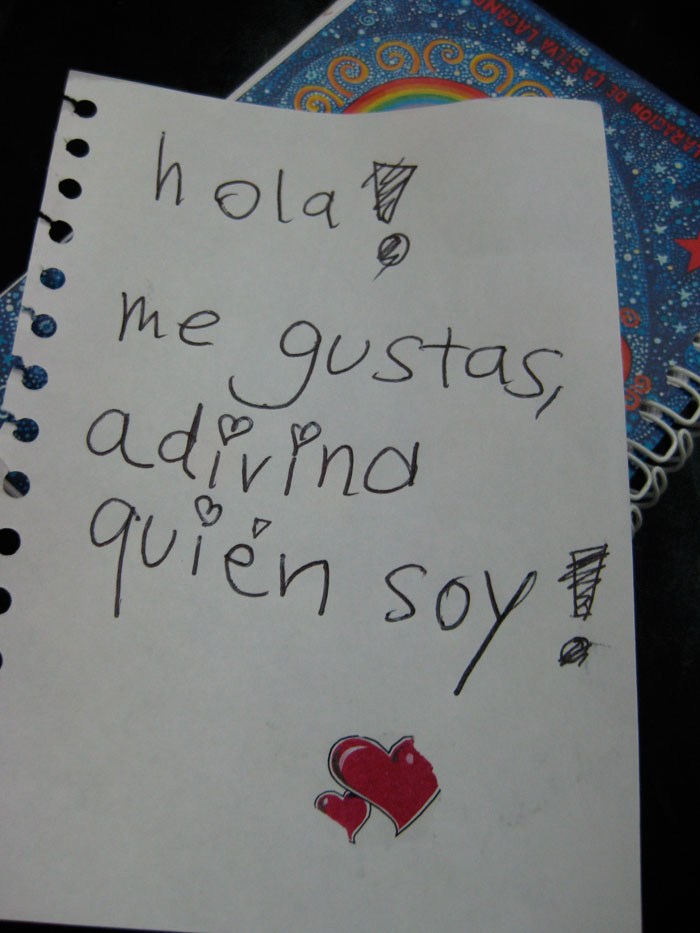 hola!
me gustas,
adivina
quién soy!
LARACION DE LA SELVA LACAND